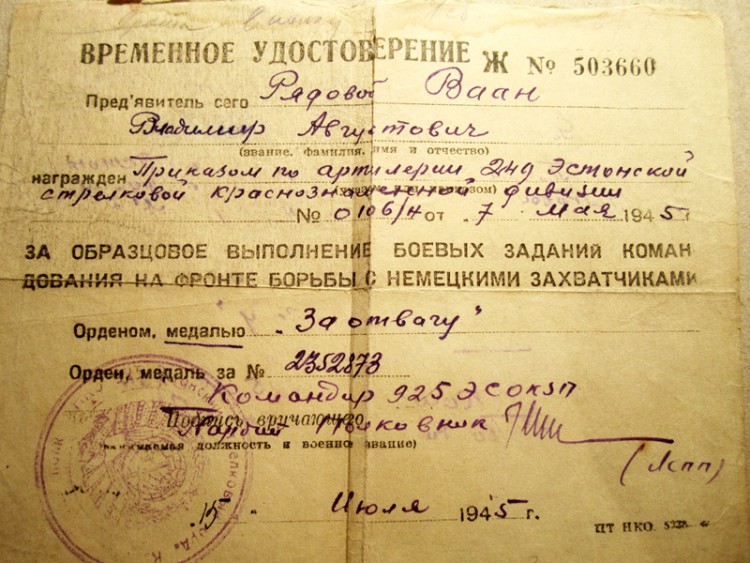 ВРЕМЕННОЕ УДОСТОВЕРЕНИЕ Ж № 503660
Пред'явитель сего Рядовой Ваан
Владимир Августович
(звание, фамилия, имя и отчество)
награжден Приказом по артилерии 249 Эстонской
стрелковой краснознаменной дивизии
№ 0106/н от 7 Мая 1945 г
ЗА ОБРАЗЦОВОЕ ВЫПОЛНЕНИЕ БОЕВЫХ ЗАДАНИЙ КОМАН
ДОВАНИЯ НА ФРОНТЕ БОРЬБЫ С НЕМЕЦКИМИ ЗАХВАТЧИКАМИ
Орденом, медалью „За отвагу"
Орден, медаль за № 2352873
Командир 925 ЭСОКЗП
Подпись вручающего
Гвардии Полковник
(занимаемая должность и военное звание)
15 " Июля 1945 г.
ЦТ НКО.